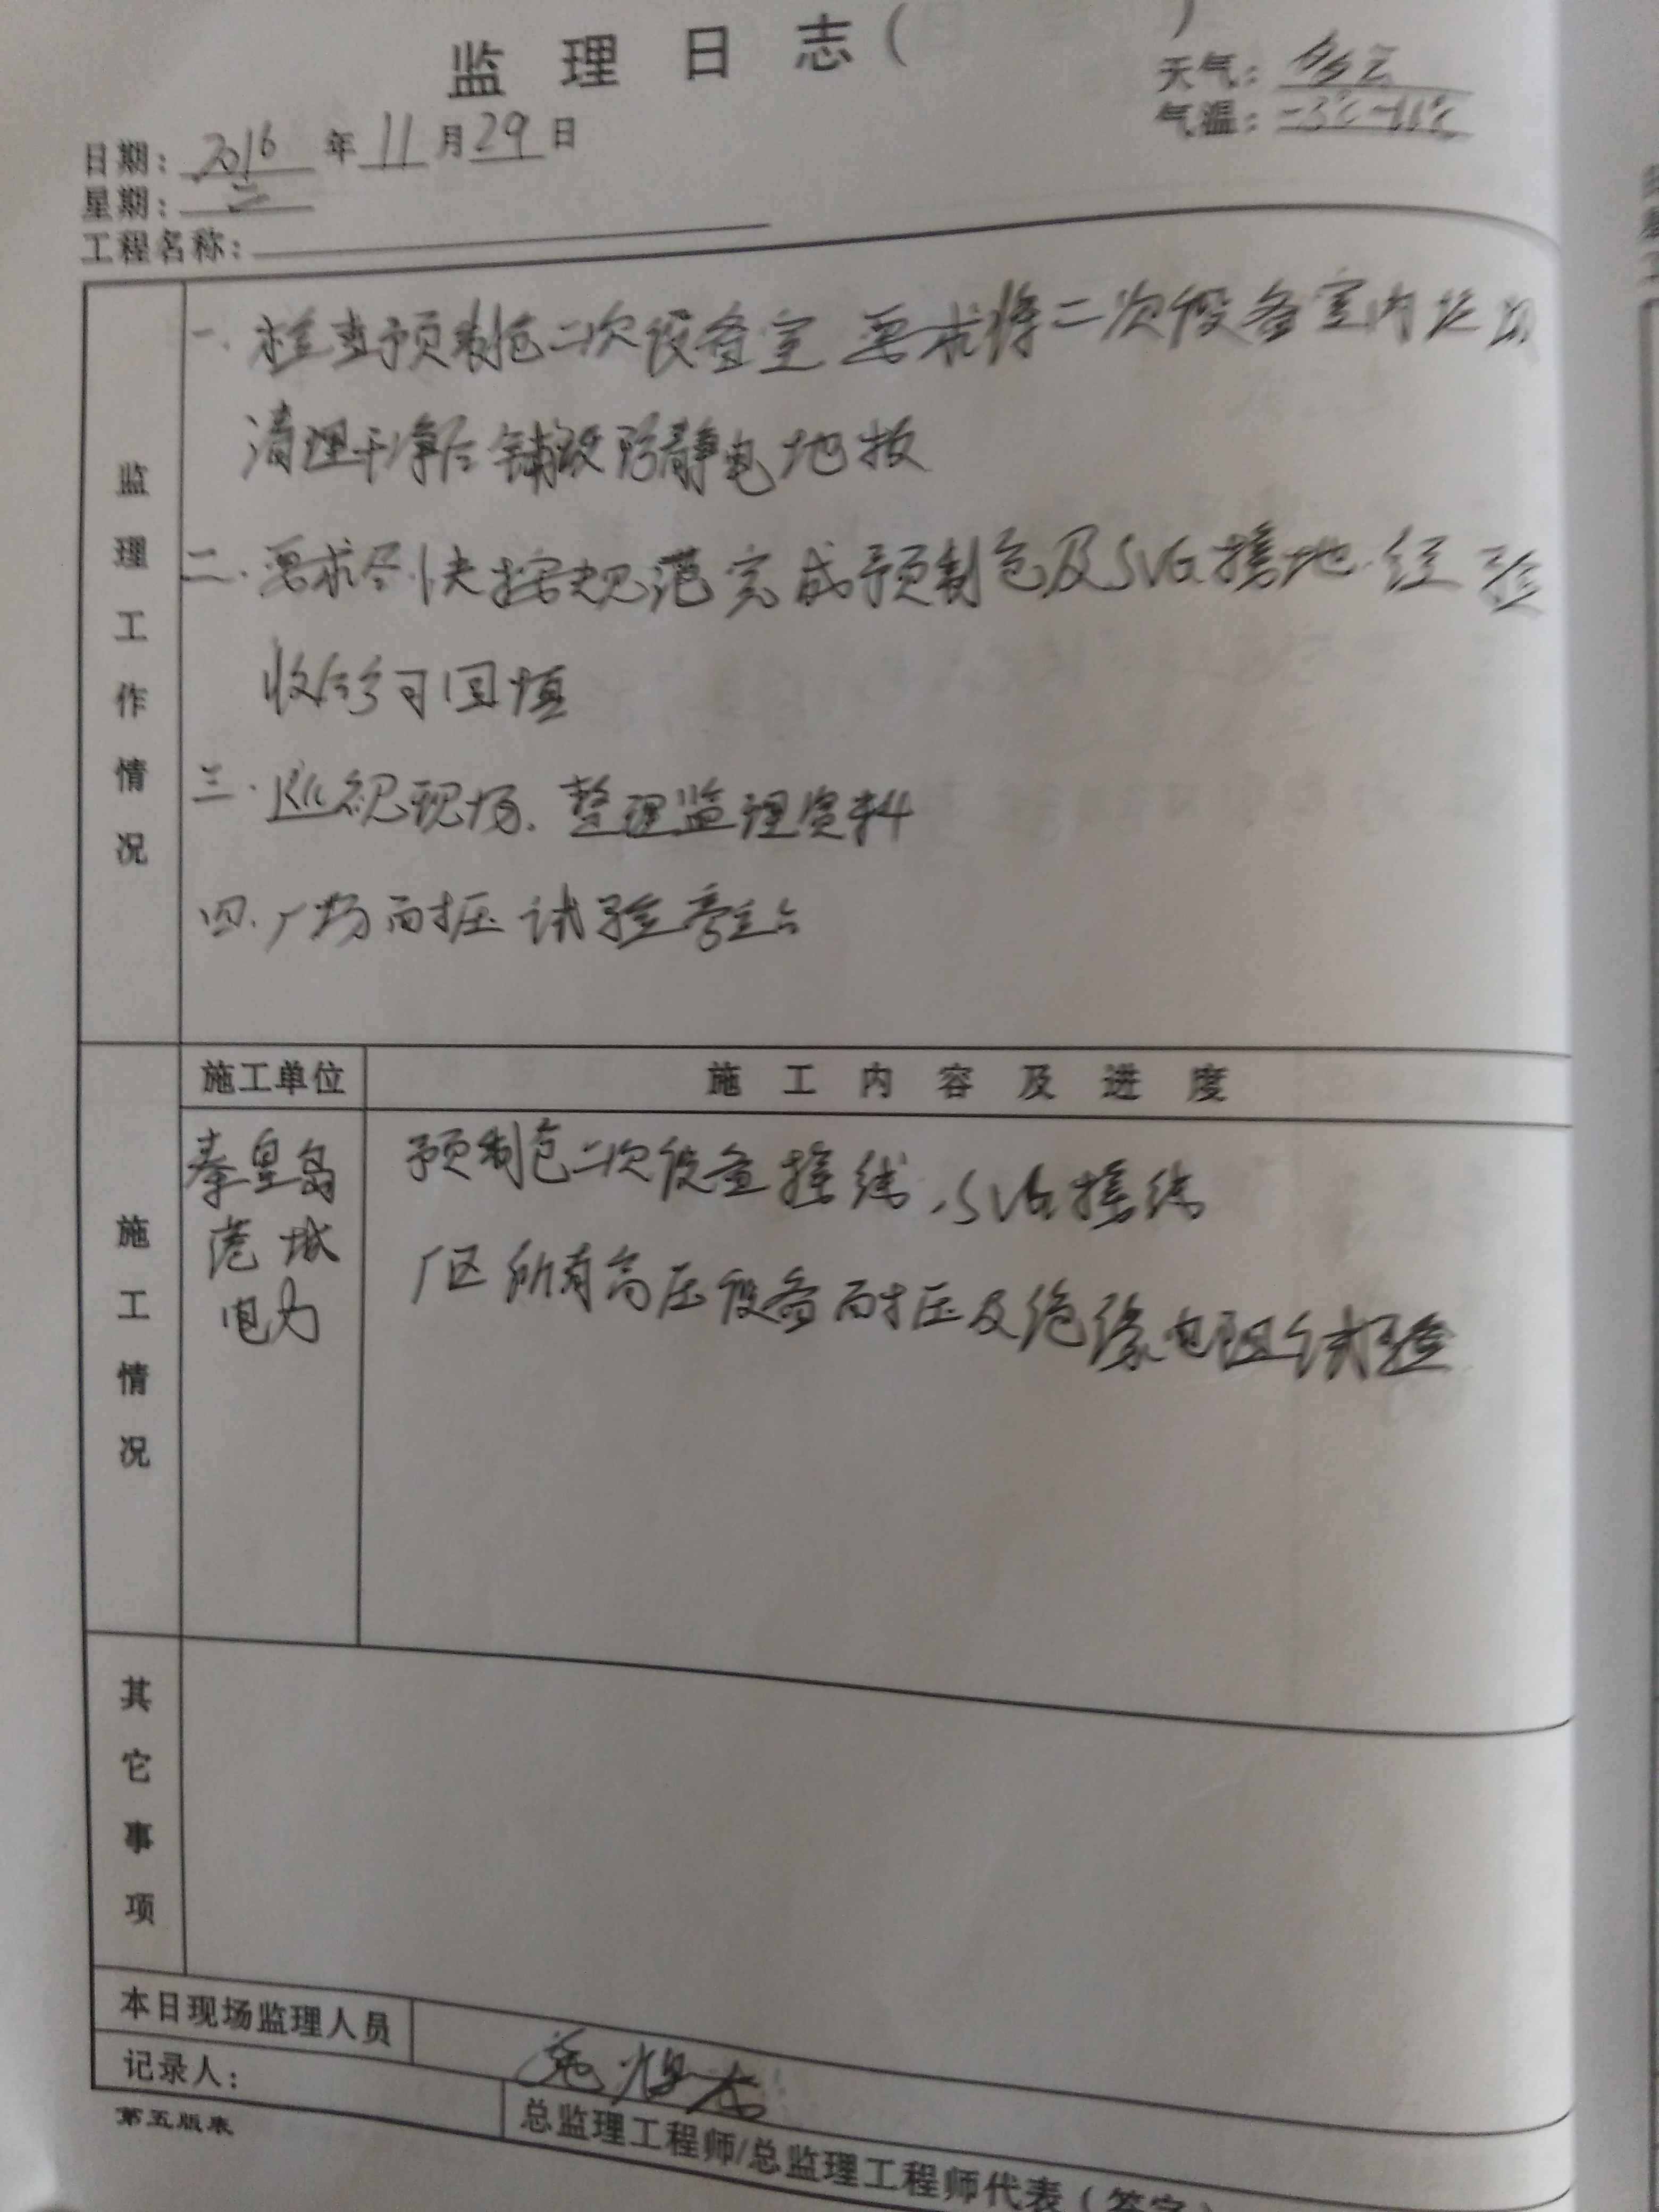 监理日志(
)
天气：多云
气温：-3℃-11℃
日期：2016年11月29日
星期：二
工程名称：
监理工作情况
一. 检查预制仓二次设备室 要求将二次设备室内垃圾
清理干净后铺设防静电地板
二. 要求尽快按规范完成预制仓及SVG接地.经验
收后方可回填
三. 巡视现场.整理监理资料
四. 厂场耐压试验旁站
施工情况
施工单位
施工内容及进度
秦皇岛
港城
电力
预制仓二次设备接线,SVG接线
厂区所有高压设备耐压及绝缘电阻试验
其它事项
本日现场监理人员
记录人：
总监理工程师/总监理工程师代表(签字)
第五版表